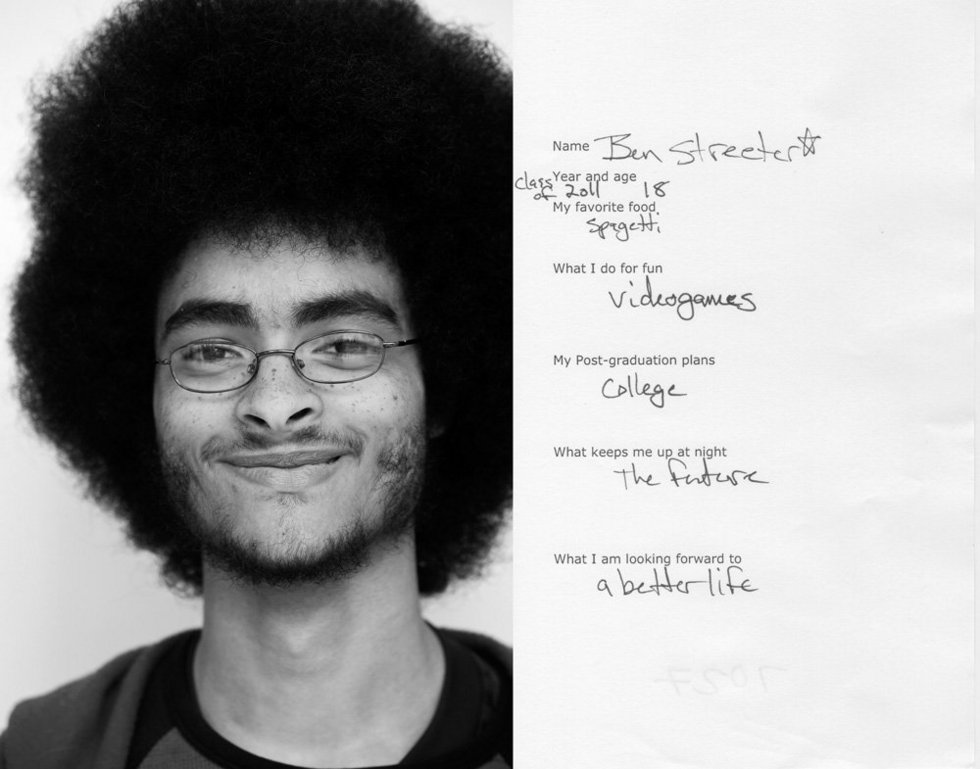 Name Ben Streeter
Year and age
class of 2011 18
My favorite food
Spagetti
What I do for fun
videogames
My Post-graduation plans
College
What keeps me up at night
The future
What I am looking forward to
a better life